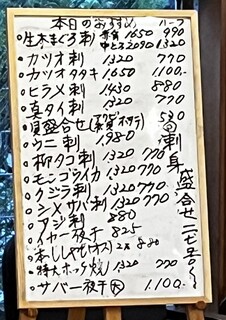 本日のおすすめ ハーフ
・生本まぐろ刺 赤身 1650 990
中とろ 2090 1320
・カツオ刺 1320 770
・カツオタタキ 1650 1100
・ヒラメ刺 1430 880
・真タイ刺 1320 770
・貝盛合せ
・ウニ刺 1980
・柳タコ刺 1320 770
・モンゴウイカ 1320 770
・クジラ刺 1320 770
・シメサバ刺 1320 770
・アジ刺 880
・イヤー夜干 825
・本ししゃも 2本 880
・特大ホッケ焼 1320 770
・サバ一夜干 大 1100
刺身盛合せ 二七五〇〜